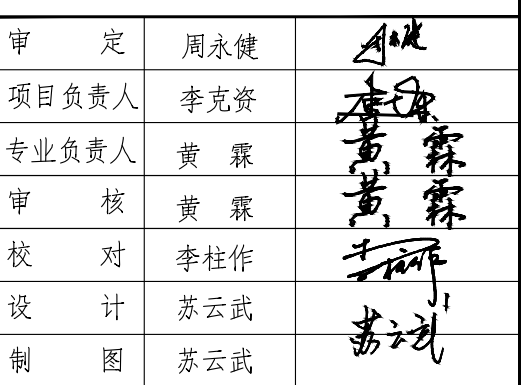 审 定 周永健 周永健
项目负责人 李克资
专业负责人 黄霖 黄霖
审 核 黄霖 黄霖
校 对 李柱作 李柱作
设 计 苏云武 苏云武
制 图 苏云武